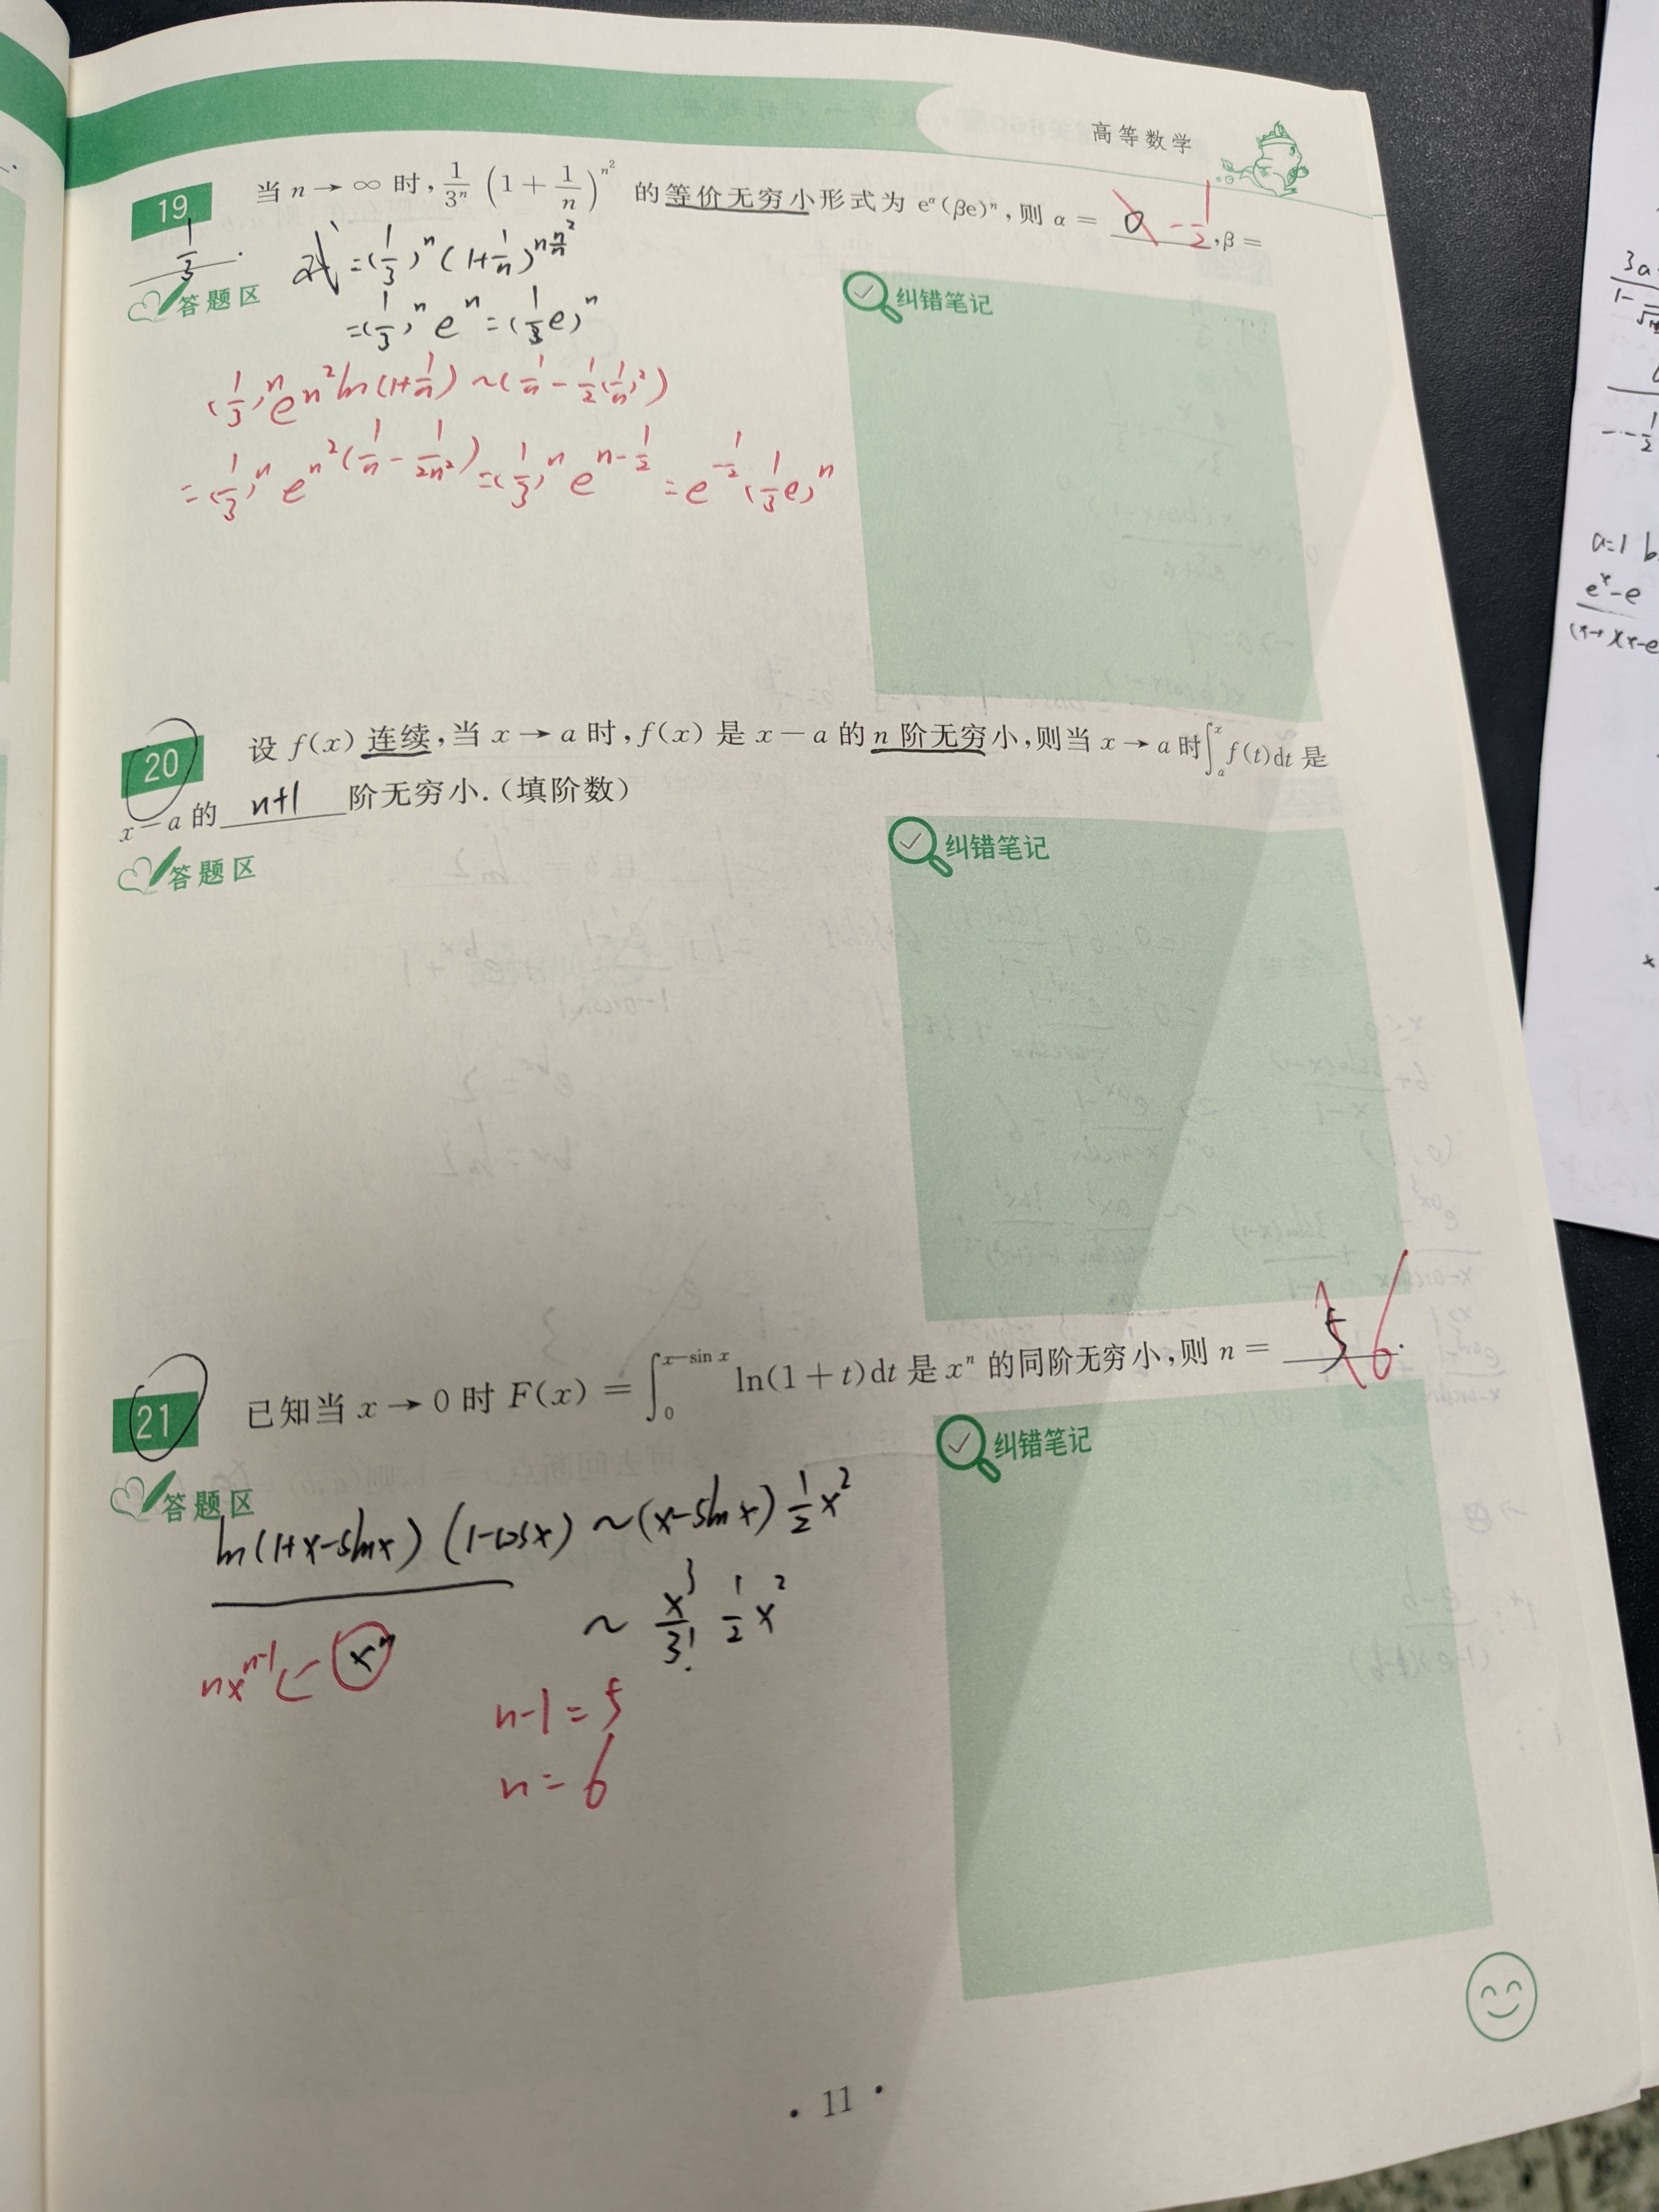 高等数学
19 当 n → ∞ 时, \frac{1}{3^n} (1 + \frac{1}{n})^{n^2} 的等价无穷小形式为 e^α(βe)^n, 则 α = 0 -\frac{1}{2}, β =
\frac{1}{3}.
答题区
纠错笔记
式 = (\frac{1}{3})^n (1+\frac{1}{n})^{n\frac{n^2}{n}}
= (\frac{1}{3})^n e^n = (\frac{1}{3}e)^n
(\frac{1}{3})^n e^{n^2 ln(1+\frac{1}{n})} ~ (\frac{1}{n} - \frac{1}{2}(\frac{1}{n})^2)
= (\frac{1}{3})^n e^{n^2(\frac{1}{n} - \frac{1}{2n^2})} = (\frac{1}{3})^n e^{n-\frac{1}{2}} = e^{-\frac{1}{2}} (\frac{1}{3}e)^n
20 设 f(x) 连续, 当 x → a 时, f(x) 是 x − a 的 n 阶无穷小, 则当 x → a 时 ∫_a^x f(t)dt 是
x − a 的 n+1 阶无穷小.(填阶数)
答题区
纠错笔记
21 已知当 x → 0 时 F(x) = ∫_0^{x−sin x} ln(1+t)dt 是 x^n 的同阶无穷小, 则 n = 5 6.
答题区
纠错笔记
ln(1+x-sinx) (1-cosx) ~ (x-sinx) \frac{1}{2}x^2
~ \frac{x^3}{3!} \frac{1}{2}x^2
nx^{n-1} ← x^n
n-1 = 5
n = 6
· 11 ·
a=1 b
\frac{e^x-e}{